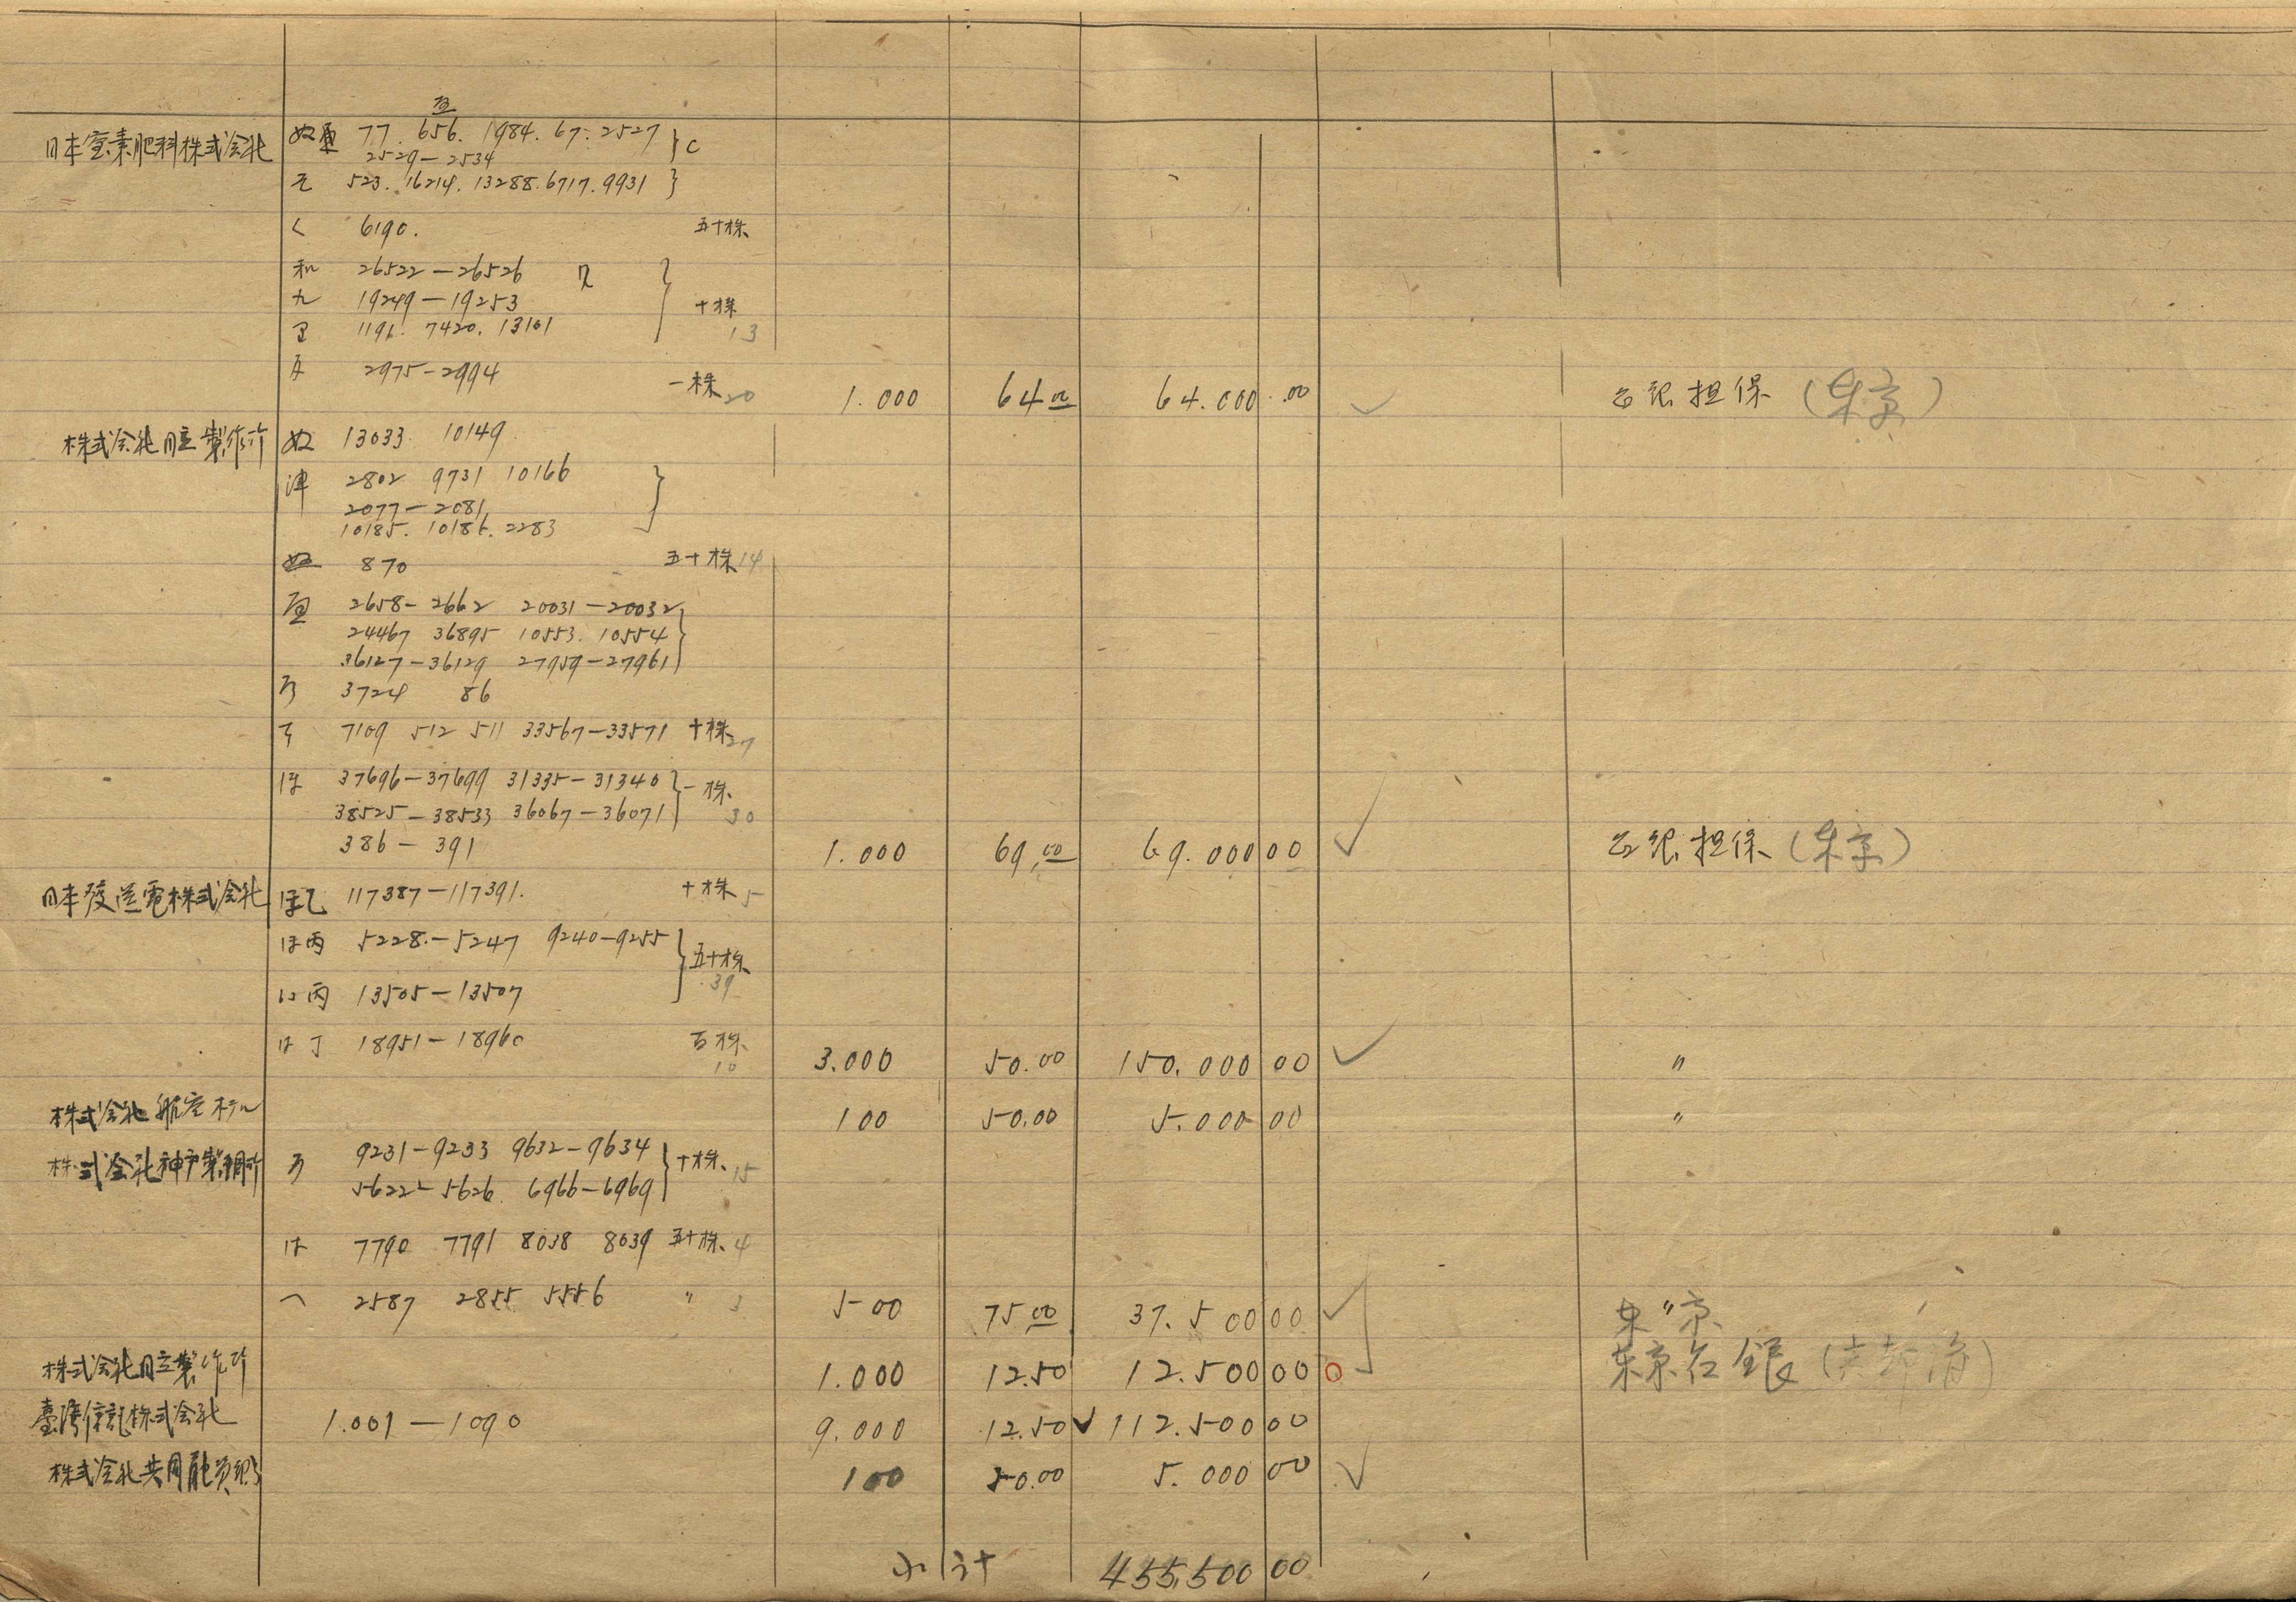 日本窒素肥料株式会社 ぬ 77. 656. 1984. 67. 2527
2529-2534
523. 16214. 13288. 6717. 9931
く 6190. 五十株
和 26522-26526
九 19249-19253 十株
1196. 7420. 13101 13
2975-2994 一株 20 1.000 64.00 64.000.00 台銀担保(東京)
株式会社日立製作所 ぬ 13033. 10149
2802 9731 10166
2077-2081
10185. 10186. 2283
870 五十株 14
2658-2662 20031-20032
24467 36895 10553. 10554
36127-36129 27959-27961
3724 86
7109 512 511 33567-33571 十株 27
ほ 37696-37699 31335-31340 一株
38525-38533 36067-36071 30
386-391 1.000 69.00 69.000 00 台銀担保(東京)
日本發送電株式会社 ほ乙 117387-117391. 十株 5
ほ丙 5228.-5247 9240-9255 五十株
39
は丙 13505-13507
は丁 18951-18960 百株
10 3.000 50.00 150.000 00 〃
株式会社航空ホテル 100 50.00 5.000 00 〃
株式会社神戸製鋼所 9231-9233 9632-9634 十株 15
5622-5626. 6966-6969
は 7790 7791 8038 8039 五十株 4
へ 2587 2855 5556 〃 3 500 75.00 37.500 00 東〃京
株式会社日立製作所 1.000 12.50 12.500 00 東京台銀
臺湾信託株式会社 1.001-1090 9.000 12.50 112.500 00
株式会社共同融資銀 100 50.00 5.000 00
小計 455,500 00